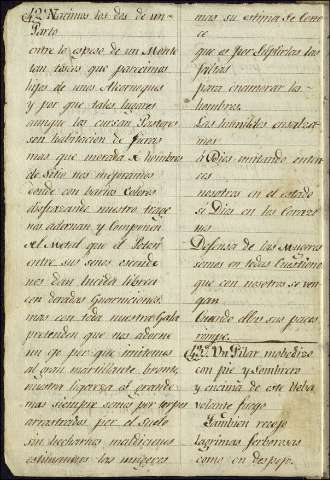 42ª Nacimos los dos de un
Parto
entre lo espeso de un Monte
tan toscos que parecimos
hijos de unos Alcornoques
y por que tales lugares
aunque los cursan Pastores
son habitacion de fieras
mas que morada de hombres
de Sitio nos mejoramos
donde con barios Colores
disfrazando nuestro trage
nos adornan y Componen
el Metal que el Potosi
entre sus senos esconde
nos dan librea
con doradas Guarniciones
mas con toda nuestra Gala
pretenden que nos adorne
un go por que imitemos
al gran martillante bronte
nuestra ligereza es grande
mas siempre somos por torpes
arrastrados por el Suelo
sin hecharnos maldiciones
estimamos las mugeres
mas su estima se Cono
ce
que es por Suplirlas las
faltas
para enamorar los
hombres.
Las humildes ensalza
mos
à Dios imitando enton
ces
nosotros en el estado
si Dios en los Corazo
nes
Defensa de las Mugeres
somos en todas Cuestiones
que con nosotros se ven
gan
Cuando ellos sus paces
rompe.
43ª. Un Pilar mohedizo
con pie y Sombrero
y encima de este
volante fuego
Tambien recojo
lagrimas ferborosas
como en despojo.